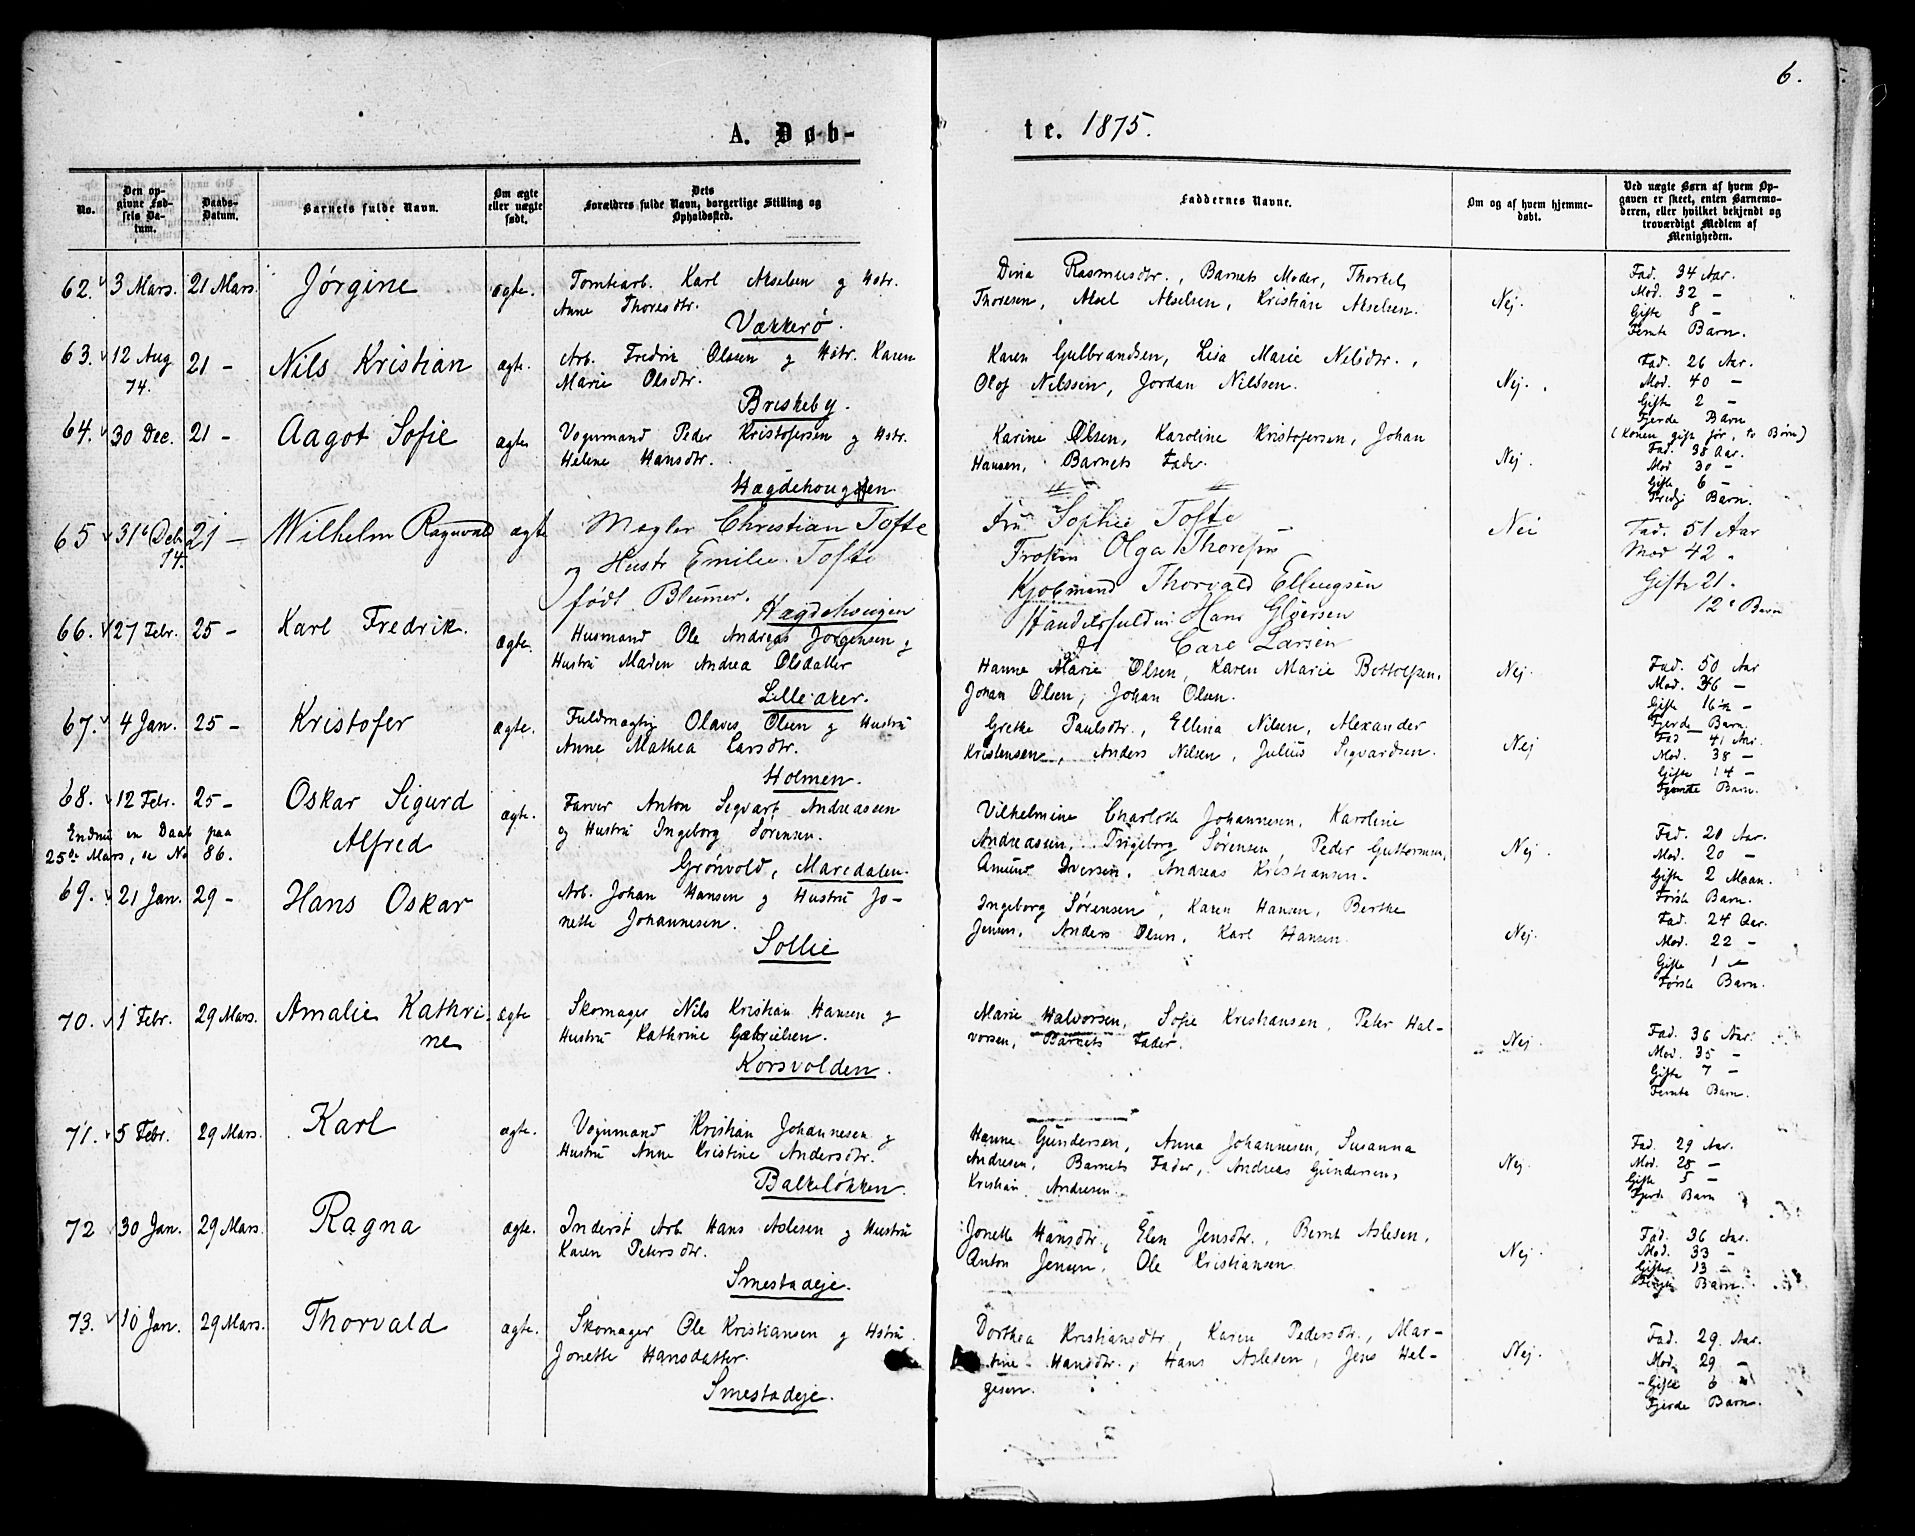 6.
A. Døb-
te. 1875.
No.
Den op-
givne Fød-
sels Da-
tum.
Daabs-
Datum.
Barnets fulde Navn.
Om ægte
eller uægte
født.
Dets
Forældres fulde Navn, borgerlige Stilling og
Opholdssted.
Faddernes Navne.
Om og af hvem hjemme-
døbt.
Ved uægte Børn af hvem Op-
gaven er skeet, enten Barnemo-
deren, eller hvilket bekjendt og
troværdigt Medlem af
Menigheden.
62. 3 Mars. 21 Mars. Jørgine ægte. Tomtearb. Karl Akselsen og Hstr.
Anne Thoresdtr.
Vækkerø.
Dina Rasmusdtr., Barnets Moder, Thorkel
Thoresen, Aksel Akselsen, Kristian Akselsen.
Nej.
Fad. 34 Aar.
Mod. 32 -
Gifte 8 -
Femte Barn.
63. 12 Aug 74. 21 - Nils Kristian ægte. Arb. Fredrik Olsen og Hstr. Karen
Marie Olsdtr.
Briskeby.
Karen Gulbrandsen, Lisa Marie Nelsdtr.,
Olof Nilssen, Jordan Nilssen.
Nej.
Fad. 26 Aar.
Mod. 40 -
Gifte 2 -
Fjerde Barn
(Konen gift før, to Børn)
64. 30 Dec. 21 - Aagot Sofie ægte Vognmand Peder Kristofersen og Hstr.
Helene Hansdtr.
Hægdehougen
Karine Olsen, Karoline Kristofersen, Johan
Hansen, Barnets Fader.
Nej.
Fad. 38 Aar.
Mod 30 -
Gifte 6 -
Tredje Barn.
65 31 Deb. 74. 21 - Wilhelm Ragnvald ægte Megler Christian Tofte
og Hustr Emilie Tofte
født Blumer.
Hægdehougen
Fru Sophie Tofte
Frøken Olga Thoresen
Kjøbmand Thorvald Ellingsen
Hans Gløersen
Carl Larsen
Nei
Fad. 51 Aar
Mod 42
Gifte 21.
12e Barn
66. 27 Febr. 25 - Karl Fredrik. ægte. Husmand Ole Andreas Jørgensen og
Hustru Maren Andrea Olsdatter
Lilleaker.
Hanne Marie Olsen, Karen Marie Bottolfsen,
Johan Olsen, Johan Olsen.
Nej.
Fad. 50 Aar
Mod. 36 -
Gifte 16½ -
Fjerde Barn.
67. 4 Jan. 25 - Kristofer ægte. Fuldmægtig Olaves Olsen og Hustru
Anne Mathea Larsdtr.
Holmen.
Grethe Paulsdtr., Ellina Nilsen, Alexander
Kristensen, Anders Nilsen, Julius Sigvardsen.
Nej
Fad 41 Aar.
Mod. 38 -
Gifte 14 -
Femte Barn.
68. 12 Febr. 25 - Oskar Sigurd
Alfred
Endnu en Daab paa
25de Mars, se No 86.
ægte. Farver Anton Segvart Andreasen
og Hustru Ingeborg Sørensen.
Grønvold, Maredalen.
Vilhelmine Charlotte Johannesen, Karoline
Andreassen, Ingeborg Sørensen, Peder Guttormsen,
Amund Iversen, Andreas Kristiansen.
Nej.
Fad. 20 Aar.
Mod. 20 -
Gifte 2 Maan.
Første Barn.
69. 21 Jan. 29 - Hans Oskar Arb. Johan Hansen og Hustru Jo-
nette Johannesen.
Sollie
Ingeborg Sørensen, Karen Hansen, Berthe
Jensen, Anders Olsen, Karl Hansen.
Nej.
Fad. 24 Aar.
Mod. 22 -
Gifte 1 -
Første Barn.
70. 1 Febr. 29 Mars. Amalie Kathri-
ne
ægte Skomager Nils Kristian Hansen og
Hustru Kathrine Gabrielsen.
Korsvolden.
Marie Halvorsen, Sofie Kristiansen, Peter Hal-
vorsen, Barnets Fader.
Nej.
Fad. 36 Aar.
Mod. 35 -
Gifte 7 -
Femte Barn.
71. 5 Febr. 29 Mars. Karl ægte. Vognmand Kristian Johannesen og
Hustru Anne Kristine Andersdtr.
Balkeløkken.
Hanne Gundersen, Anna Johannesen, Susanna
Andresen, Barnets Fader, Andreas Gundersen,
Kristian Andresen
Nej
Fad. 29 Aar.
Mod. 28 -
Gifte 5 -
Fjerde Barn
72 30 Jan. 29 Mars. Ragna ægte. Inderst Arb. Hans Aslesen og Hustru
Karen Petersdtr.
Smestadeje.
Jonette Hansdtr., Elen Jensdtr., Bernt Aslesen,
Anton Jensen, Ole Kristiansen.
Nej.
Fad. 36 Aar.
Mod. 33 -
Gifte 13 -
Barn.
73. 10 Jan. 29 Mars. Thorvald ægte. Skomager Ole Kristiansen og Hstru
Jonette Hansdatter.
Smestadeje.
Dorthea Kristiansdtr., Karen Pedersdtr., Mar-
tine Hansdtr., Hans Aslesen, Jens Hel-
gesen.
Nej.
Fad. 29. Aar.
Mod. 29 -
Gifte 6
Fjerde Barn.